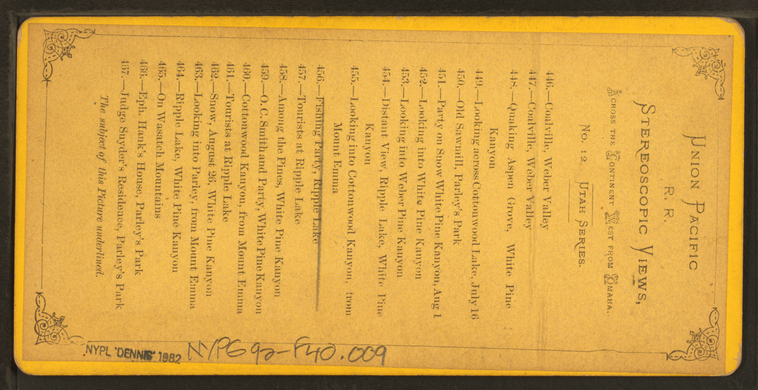 UNION PACIFIC
R. R.
STEREOSCOPIC VIEWS,
ACROSS THE CONTINENT WEST FROM OMAHA.
No. 12. UTAH SERIES.
446.—Coalville, Weber Valley
447.—Coalville, Weber Valley
448.—Quaking Aspen Grove, White Pine
Kanyon
449.—Looking across Cottonwood Lake, July 16
450.—Old Sawmill, Parley's Park
451.—Party on Snow White Pine Kanyon, Aug 1
452.—Looking into White Pine Kanyon
453.—Looking into Weber Pine Kanyon
454.—Distant View, Ripple Lake, White Pine
Kanyon
455.—Looking into Cottonwood Kanyon, from
Mount Emma
456.—Fishing Party, Ripple Lake
457.—Tourists at Ripple Lake
458.—Among the Pines, White Pine Kanyon
459.—O. C. Smith and Party, White Pine Kanyon
460.—Cottonwood Kanyon, from Mount Emma
461.—Tourists at Ripple Lake
462.—Snow, August 26, White Pine Kanyon
463.—Looking into Parley, from Mount Emma
464.—Ripple Lake, White Pine Kanyon
465.—On Wasatch Mountains
466.—Eph. Hank's House, Parley's Park
467.—Judge Snyder's Residence, Parley's Park
The subject of this Picture underlined.
NYPL "DENNIS" 1982
NYPG92-F40.009